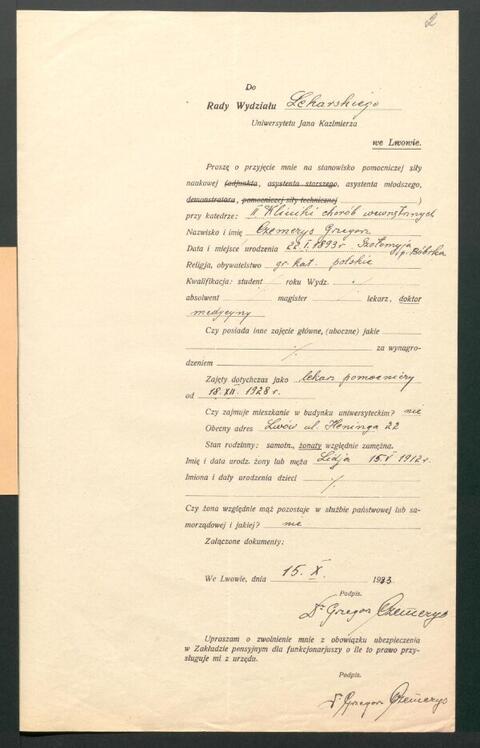 2
Do
Rady Wydziału Lekarskiego
Uniwersytetu Jana Kazimierza
we Lwowie.
Proszę o przyjęcie mnie na stanowisko pomocniczej siły
naukowej (adjunkta, asystenta starszego, asystenta młodszego,
demonstratora, pomocniczej siły technicznej)
przy katedrze: II Kliniki chorób wewnętrznych
Nazwisko i imię Czemerys Gregor
Data i miejsce urodzenia 22.I.1893r. Szołomyja p. Bóbrka
Religja, obywatelstwo gr. kat. polskie
Kwalifikacja: student / roku Wydz. /
absolwent magister lekarz, doktor
medycyny
Czy posiada inne zajęcie główne, (uboczne) jakie
/. za wynagro-
dzeniem
Zajęty dotychczas jako lekarz pomocniczy
od 18.XII.1928 r.
Czy zajmuje mieszkanie w budynku uniwersyteckim? nie
Obecny adres Lwów ul. Heninga 22
Stan rodzinny: samotn., żonaty względnie zamężna.
Imię i data urodz. żony lub męża Lidja 15.V 1912r.
Imiona i daty urodzenia dzieci /.
Czy żona względnie mąż pozostaje w służbie państwowej lub sa-
morządowej i jakiej? nie
Załączone dokumenty:
We Lwowie, dnia 15. X. 1933.
Podpis.
Dr Gregor Czemerys
Upraszam o zwolnienie mnie z obowiązku ubezpieczenia
w Zakładzie pensyjnym dla funkcjonarjuszy o ile to prawo przy-
sługuje mi z urzędu.
Podpis.
Dr Gregor Czemerys